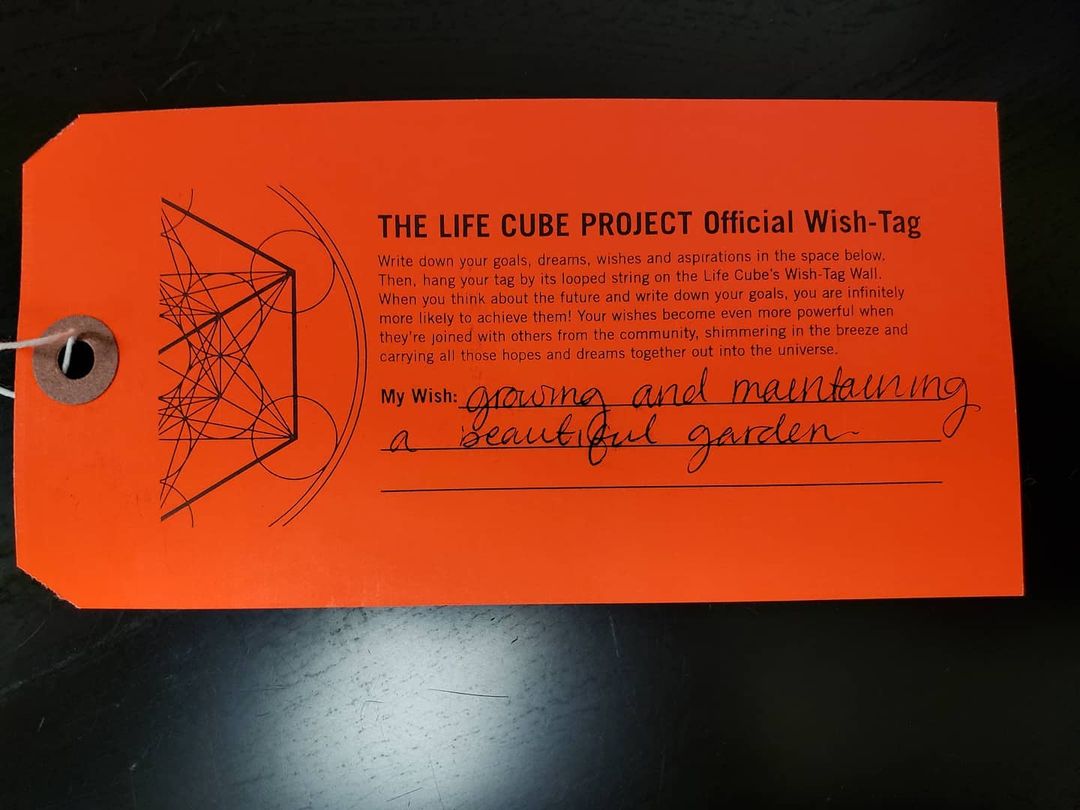 THE LIFE CUBE PROJECT Official Wish-Tag
Write down your goals, dreams, wishes and aspirations in the space below.
Then, hang your tag by its looped string on the Life Cube's Wish-Tag Wall.
When you think about the future and write down your goals, you are infinitely
more likely to achieve them! Your wishes become even more powerful when
they're joined with others from the community, shimmering in the breeze and
carrying all those hopes and dreams together out into the universe.
My Wish: growing and maintaining
a beautiful garden